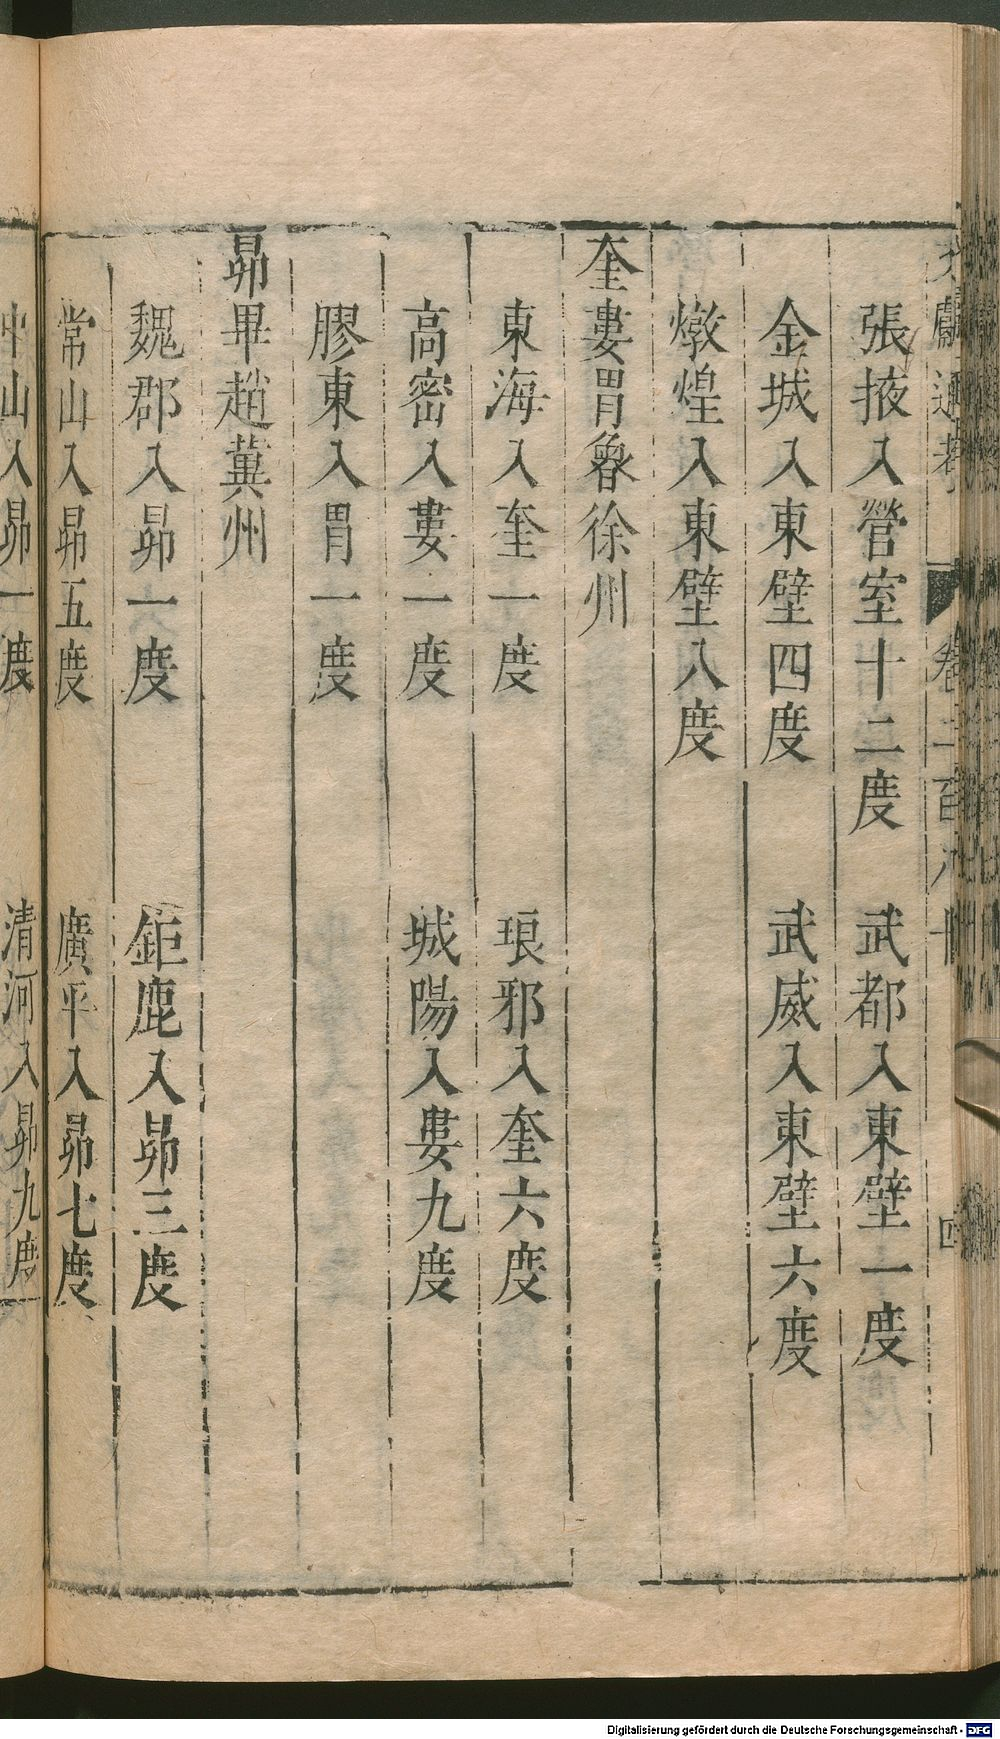 文獻通考 卷二百八十 四
張掖入營室十二度 武都入東壁一度
金城入東壁四度 武威入東壁六度
燉煌入東壁八度
奎婁胃魯徐州
東海入奎一度 琅邪入奎六度
高密入婁一度 城陽入婁九度
膠東入胃一度
昴畢趙冀州
魏郡入昴一度 鉅鹿入昴三度
常山入昴五度 廣平入昴七度
中山入昴一度 清河入昴九度
Digitalisierung gefördert durch die Deutsche Forschungsgemeinschaft - DFG